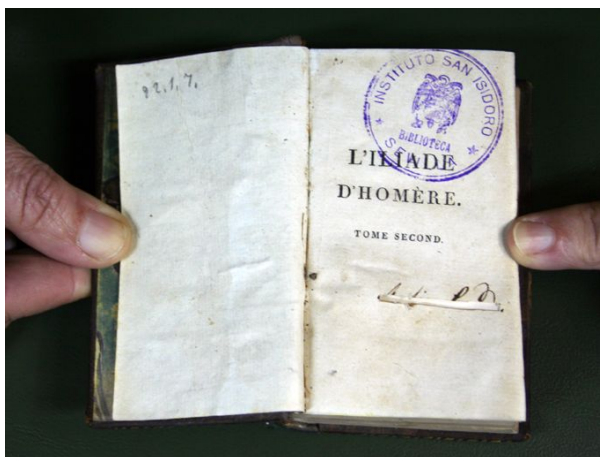 92.1.7.
INSTITUTO SAN ISIDORO
BIBLIOTECA
SEVILLA
L'ILIADE
D'HOMÈRE.
TOME SECOND.